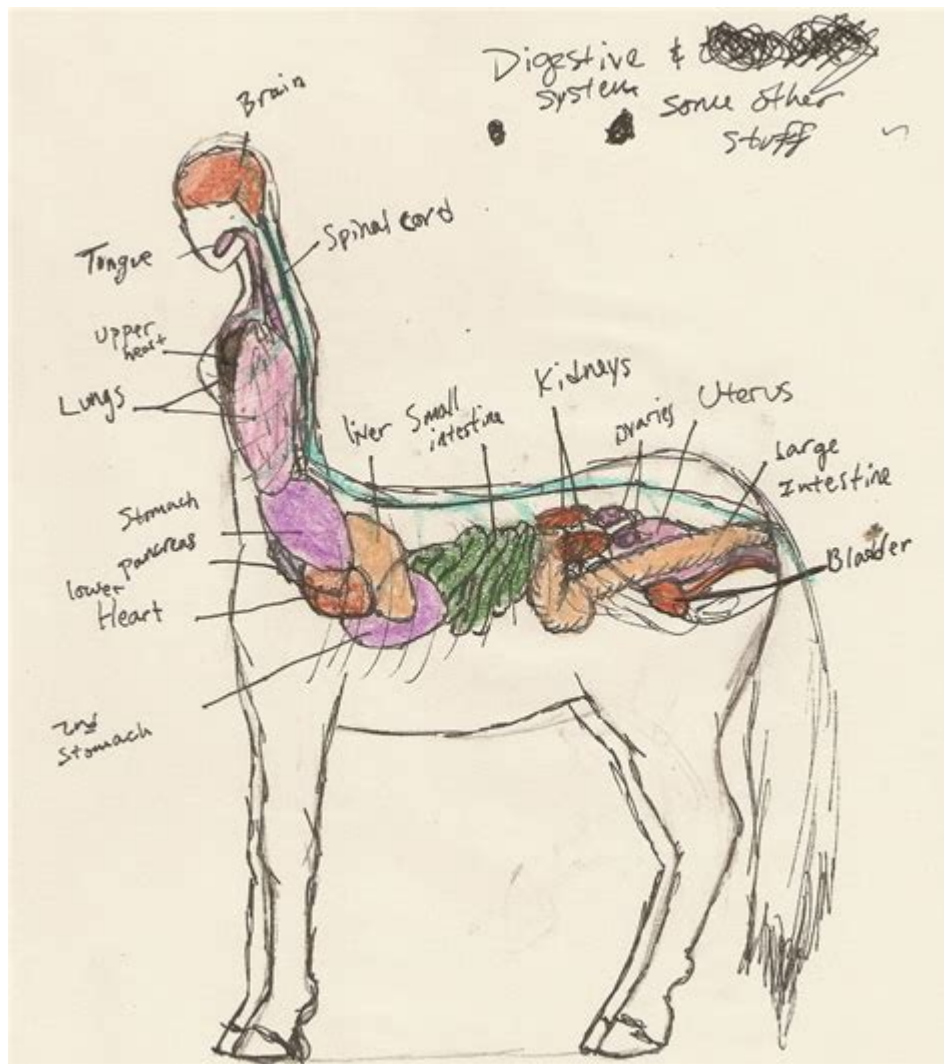 Digestive &
system some other
stuff
Brain
Spinal cord
Tongue
upper
heart
Lungs
liver
Small
intestine
Kidneys
ovaries
Uterus
Large
Intestine
Stomach
pancreas
lower
Heart
Bladder
2nd
Stomach